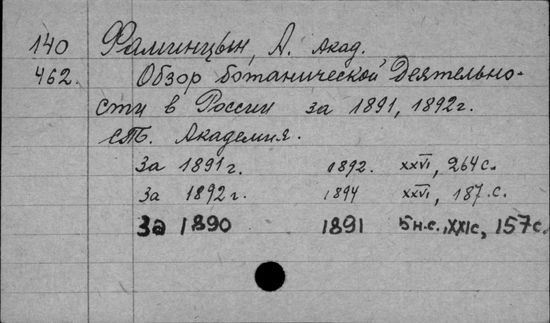 140 Фаминцын, А. Акад.
462. Обзор ботанической Деятельно-
сти в России за 1891, 1892г.
СПБ. Академия.
За 1891г. 1892. XXVI, 264 с.
За 1892г. 1894 XXVI, 187 с.
За 1890 1891 5н.с., XXIс, 157с.